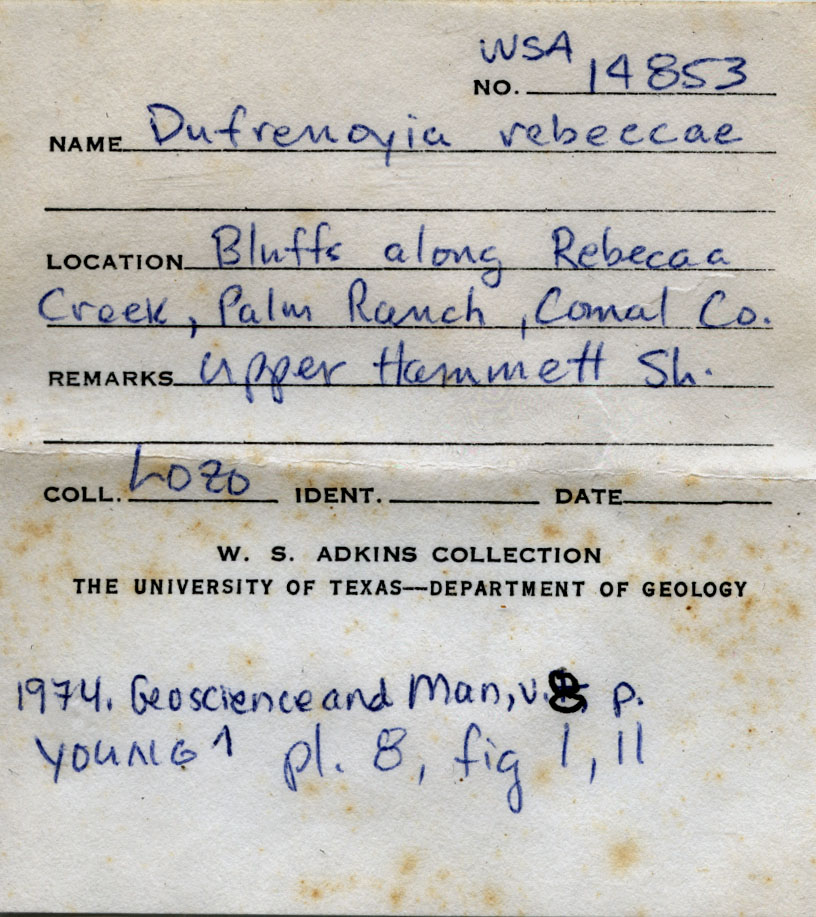 WSA
NO. 14853
NAME Dufrenoyia rebeccae
LOCATION Bluffs along Rebecaa
Creek, Palm Ranch, Comal Co.
REMARKS Upper Hammett Sh.
COLL. Lozo IDENT. DATE
W. S. ADKINS COLLECTION
THE UNIVERSITY OF TEXAS—DEPARTMENT OF GEOLOGY
1974. Geoscience and Man, v. 8, p.
YOUNG ^ pl. 8, fig 1, 11